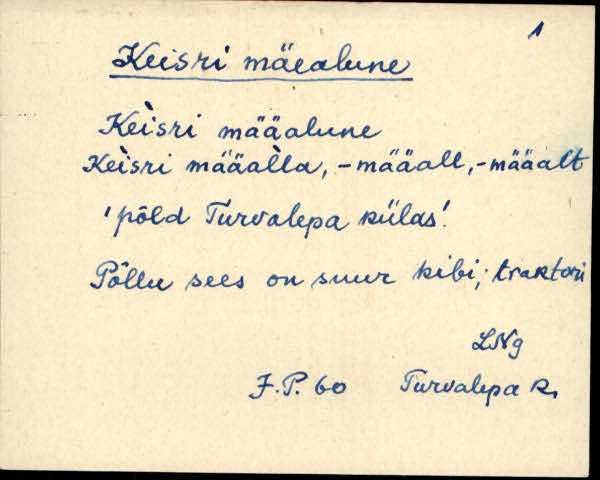 1
Keisri mäealune
Kèisri määalune
Kèisri määal̀la, -määall, -määalt
'põld Turvalepa külas'.
Põllu sees on suur kibi; traktori
LNg
F.P. 60 Turvalepa k.